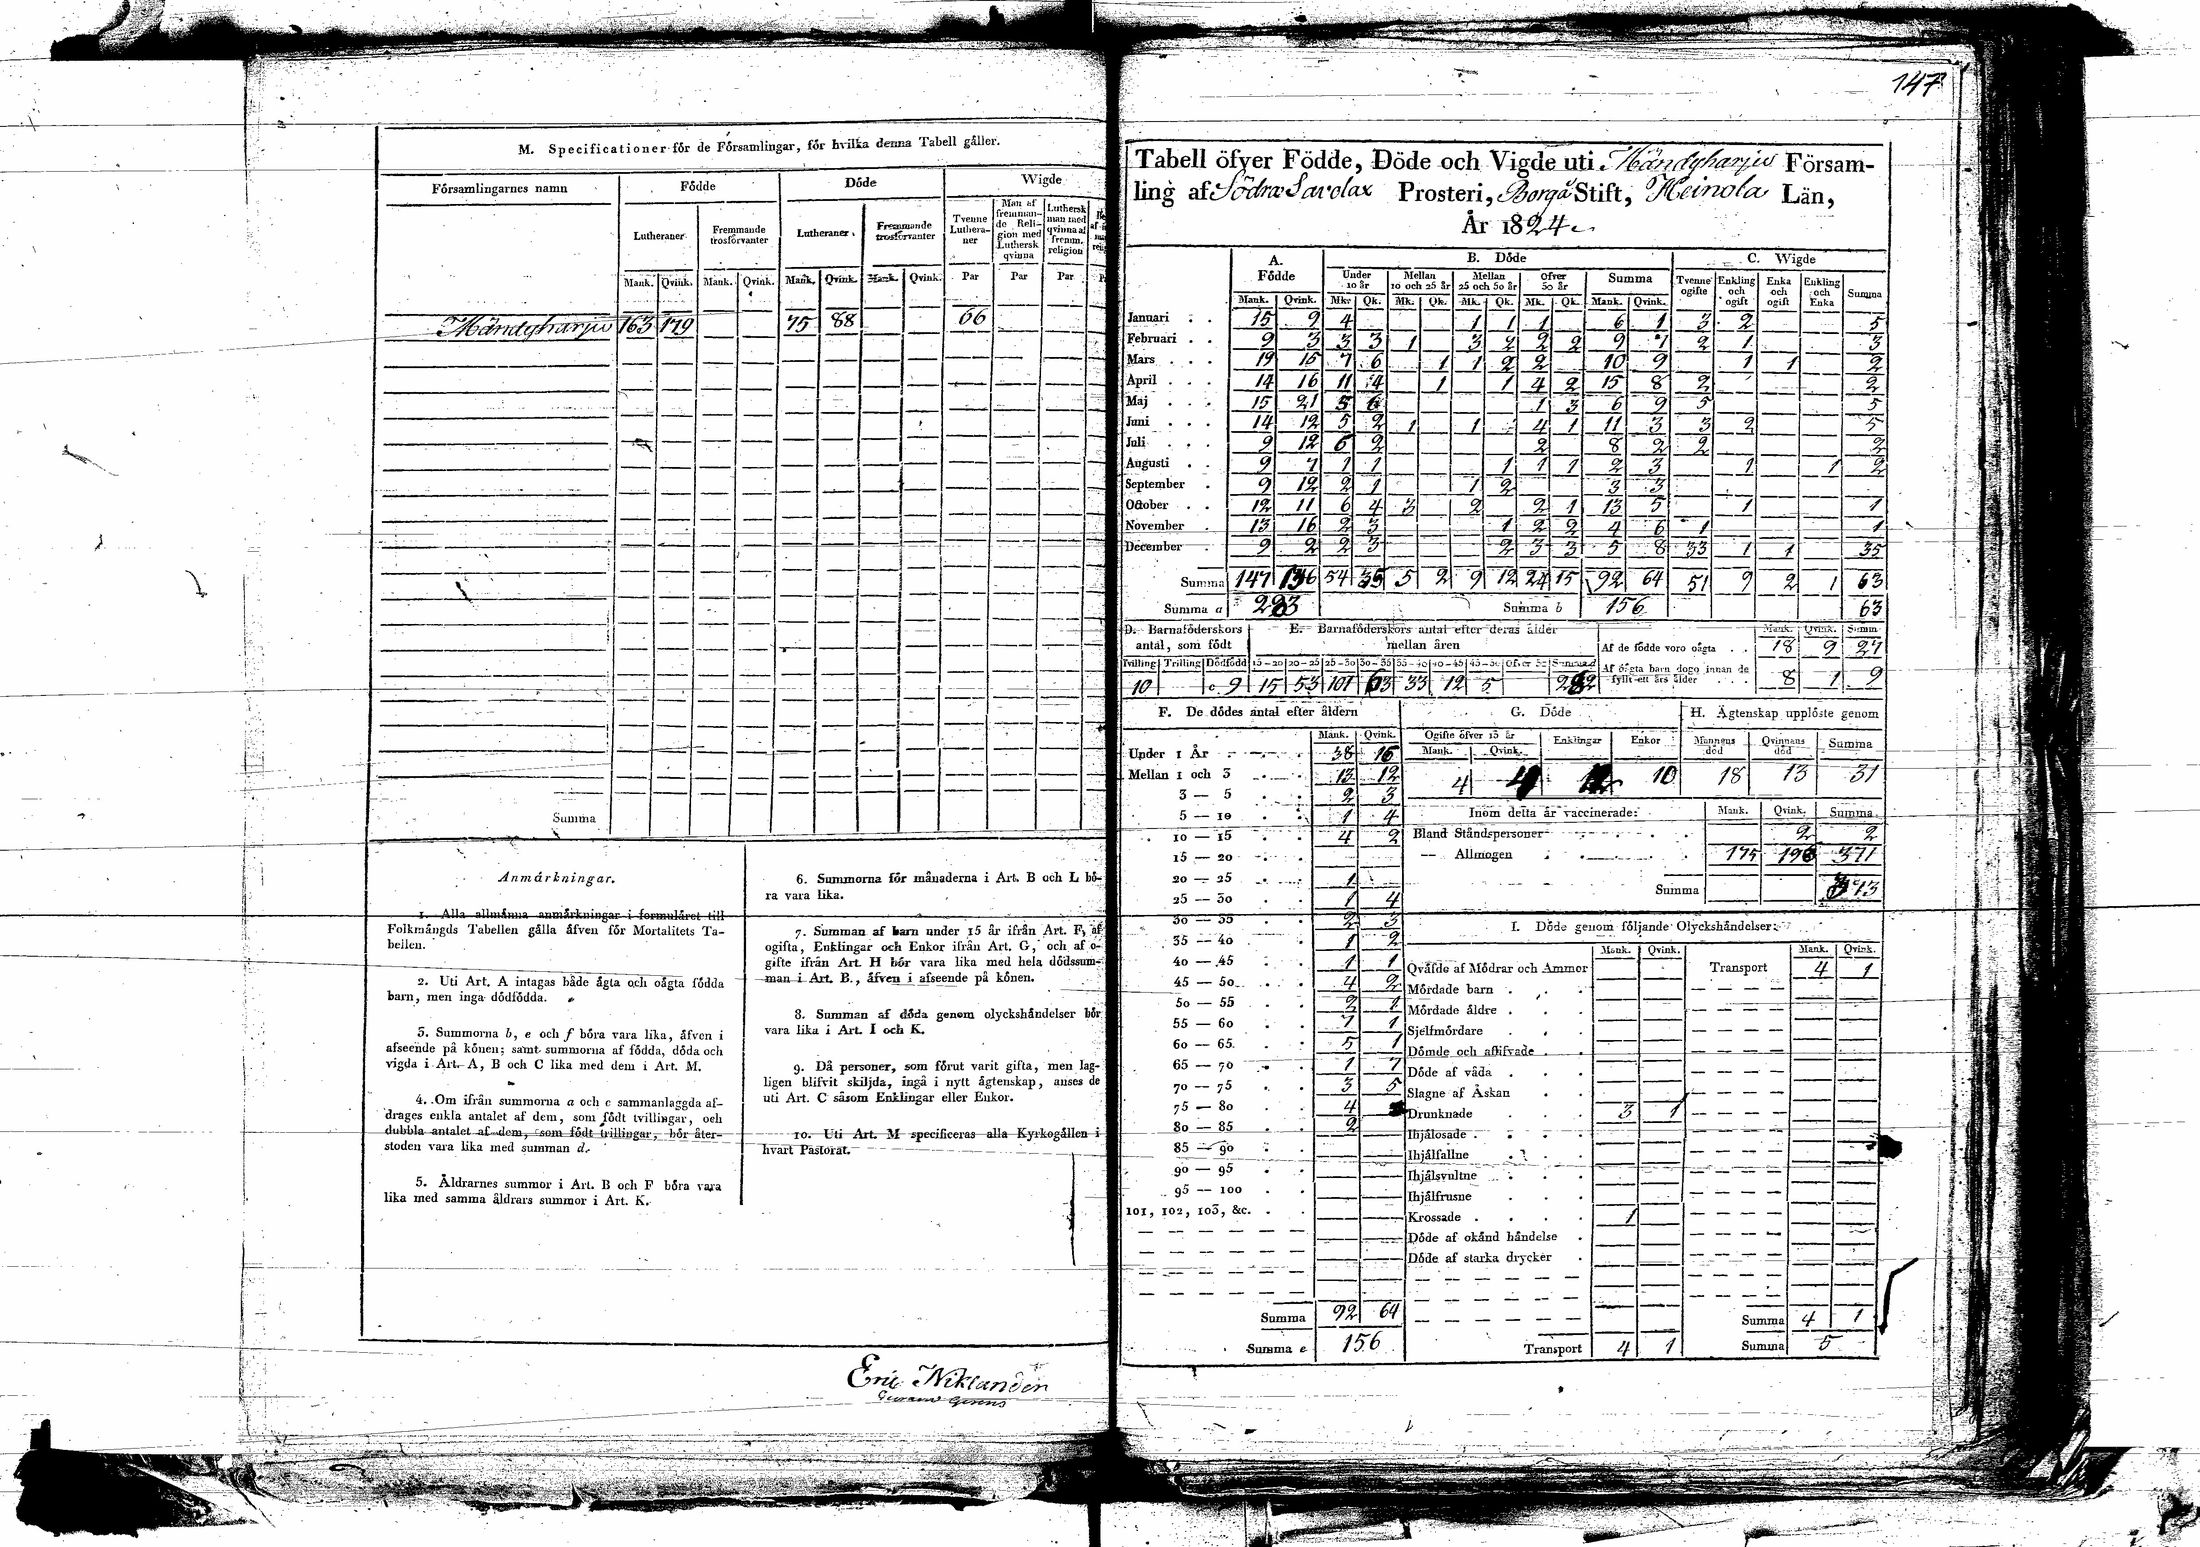 M. Specificationer för de Församlingar, för hvilka denna Tabell gäller.
Församlingarnes namn Födde Döde Wigde
Lutheraner Fremmande trosförvanter Lutheraner. Fremmande trosförvanter Tvenne Lutheraner Man af fremmande Religion med Luthersk qvinna Luthersk man med qvinna af fremm. religion
Mank. Qvink. Mank. Qvink. Mank. Qvink. Mank. Qvink. Par Par Par
Mändyharju 163 179 75 88 66
Summa
Anmärkningar.
1. Alla allmänna anmärkningar i formuläret till
Folkmängds Tabellen gälla äfven för Mortalitets Ta-
bellen.
2. Uti Art. A intagas både ägta och oägta födda
barn, men inga dödfödda.
3. Summorna b, e och f böra vara lika, äfven i
afseende på könen; samt summorna af födda, döda och
vigda i Art. A, B och C lika med dem i Art. M.
4. Om ifrån summorna a och c sammanlaggda af-
drages enkla antalet af dem, som födt tvillingar, och
dubbla antalet af dem, som födt trillingar, bör åter-
stoden vara lika med summan d.
5. Åldrarnes summor i Art. B och F böra vara
lika med samma åldrars summor i Art. K.
6. Summorna för månaderna i Art. B och L bö-
ra vara lika.
7. Summan af barn under 15 år ifrån Art. F, af
ogifta, Enklingar och Enkor ifrån Art. G, och af o-
gifte ifrån Art. H bör vara lika med hela dödssum-
man i Art. B., äfven i afseende på könen.
8. Summan af döda genom olyckshändelser bör
vara lika i Art. I och K.
9. Då personer, som förut varit gifta, men lag-
ligen blifvit skiljda, ingå i nytt ägtenskap, anses de
uti Art. C såsom Enklingar eller Enkor.
10. Uti Art. M specificeras alla Kyrkogällen i
hvart Pastorat.
Eric Niklander
147
Tabell öfver Födde, Döde och Vigde uti Mändyharju Försam-
ling af Södra Savolax Prosteri, Borgå Stift, Heinola Län,
År 1824.
A. Födde B. Döde C. Wigde
Under 10 år Mellan 10 och 25 år Mellan 25 och 50 år Öfver 50 år Summa Tvenne ogifte Enkling och ogift Enka och ogift Enkling och Enka Summa
Mank. Qvink. Mk. Qk. Mk. Qk. Mk. Qk. Mk. Qk. Mank. Qvink.
Januari 15 9 4 1 1 1 6 1 3 2 5
Februari 9 3 3 3 1 3 2 2 2 9 7 2 1 3
Mars 19 15 7 6 1 1 2 2 10 9 1 1 2
April 14 16 11 4 1 1 4 2 15 8 2 2
Maj 15 21 5 6 1 3 6 9 5 5
Juni 14 12 5 2 1 1 4 1 11 3 3 2 5
Juli 9 12 6 2 2 8 2 2 2
Augusti 9 7 1 1 1 1 1 2 3 1 1 2
September 9 12 2 1 1 2 3 3
October 12 11 6 4 3 2 2 1 13 5 1 1
November 13 16 2 3 1 2 2 4 6 1 1
December 9 2 2 3 2 3 3 5 8 33 1 1 35
Summa 147 136 54 35 5 2 9 12 24 15 92 64 51 9 2 1 63
Summa a 283 Summa b 156 63
D. Barnaföderskors antal, som födt E. Barnaföderskors antal efter deras ålder mellan åren Mank. Qvink. Summ
Tvilling Trilling Dödfödd 15-20 20-25 25-30 30-35 35-40 40-45 45-50 Öfver 50 Summa d
10 c 9 15 53 101 63 33 12 5 282
Af de födde voro oägta 18 9 27
Af oägta barn dogo innan de fyllt ett års ålder 8 1 9
F. De dödes antal efter åldern
Mank. Qvink.
Under 1 År 38 15
Mellan 1 och 3 13 12
3 — 5 2 3
5 — 10 1 4
10 — 15 4 2
15 — 20
20 — 25 1
25 — 30 1 4
30 — 35 2 3
35 — 40 1 2
40 — 45 1 1
45 — 50 4 2
50 — 55 2 1
55 — 60 7 1
60 — 65 5 1
65 — 70 1 7
70 — 75 3 5
75 — 80 4
80 — 85 2
85 — 90
90 — 95
95 — 100
101, 102, 103, &c.
Summa 92 64
Summa e 156
G. Döde H. Ägtenskap upplöste genom
Ogifte öfver 15 år Enklingar Enkor Mannens död Qvinnans död Summa
Mank. Qvink.
4 10 18 13 31
Inom detta år vaccinerade: Mank. Qvink. Summa
Bland Ståndspersoner 2 2
— Allmogen 175 196 371
Summa 373
I. Döde genom följande Olyckshändelser:
Mank. Qvink. Mank. Qvink.
Qväfde af Mödrar och Ammor Transport 4 1
Mördade barn
Mördade äldre
Sjelfmördare
Dömde och aflifvade
Döde af våda
Slagne af Åskan
Drunknade 3 1
Ihjälosade
Ihjälfallne
Ihjälsvultne
Ihjälfrusne
Krossade 1
Döde af okänd händelse
Döde af starka drycker
Summa 4 1
Transport 4 1 Summa 5